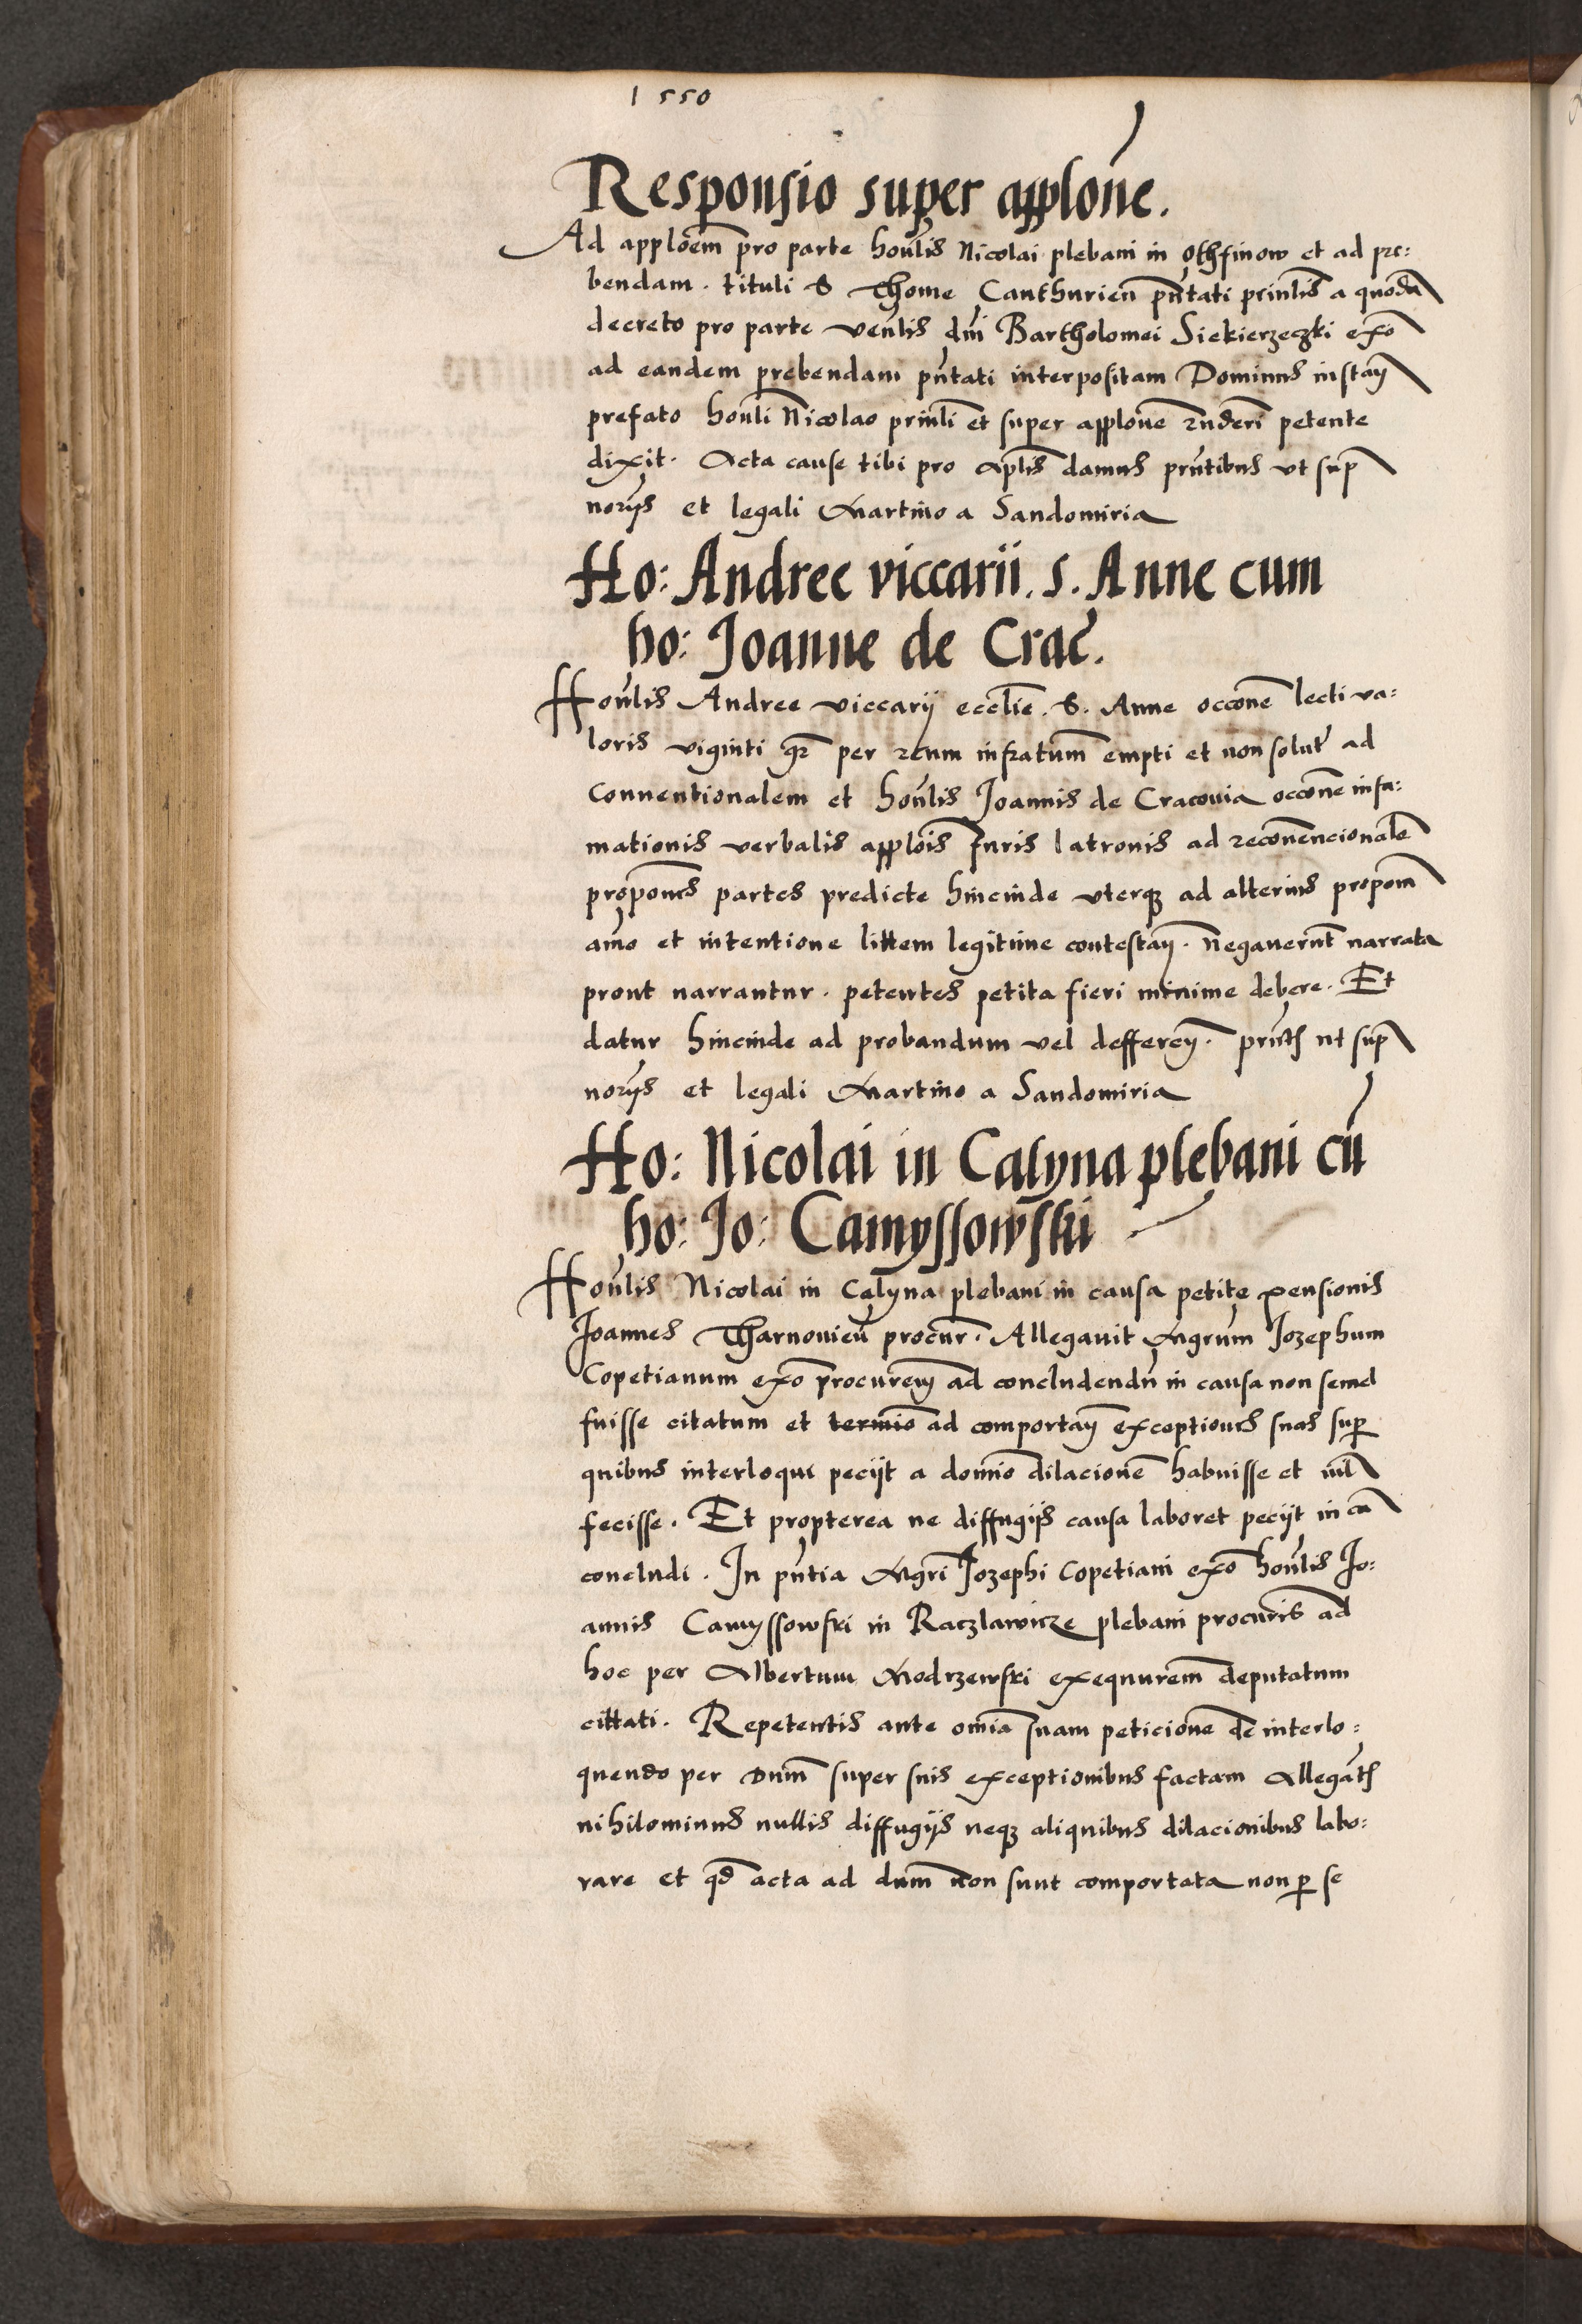 1550
Responsio super applone.
Ad apploem pro parte honlis Nicolai plebani in Othfinow et ad pre:
bendam. tituli S Thome Canthurien pntati prinlis a quodā
decreto pro parte venlis dni Bartholomei Siekierzeczki exo
ad eandem prebendam pntati interpositam Dominus instan
prefato honli Nicolao prinli et super applone rnderi petente
dixit. Acta cause tibi pro aplis damus pntibus ut sup
noriis et legali Martino a Sandomiria
Ho: Andree viccarii. s. Anne cum
ho: Joanne de Crac.
Honlis Andree viccarij ecclie. S. Anne occone lecti va:
loris viginti gr per reum infratum empti et non solut ad
Conventionalem et honlis Joannis de Cracovia occone infa:
mationis verbalis applois furis latronis ad reconvencionale
propones partes predicte hincinde uterq alterius propom
amo et intentione littem legitime contestan. Negaverunt narrata
prout narrantur. petentes petita fieri minime debere. Et
datur hincinde ad probandum vel defferen. pntis ut sup
noriis et legali Martino a Sandomiria
Ho: Nicolai in Calyna plebani cū
ho: Jo: Camyssowski
Honlis Nicolai in Calyna plebani in causa petite pensionis
Joannes Tharnovien procur. Allegavit Mgrum Jozephum
Copetianum exo procurem ad concludendū in causa non semel
fuisse citatum et termio ad comportan exceptiones suas sup
quibus interloqui peciit a domio dilacione habuisse et nil
fecisse. Et propterea ne diffugiis causa laboret peciit in ca
concludi. In pntia Mgri Jozephi Copetiani exo honlis Jo:
annis Camyssowski in Raczlawicze plebani procuris ad
hoc per Albertum Modrzewski exequurem deputatum
cittati. Repetentis ante omia suam peticione de interlo:
quendo per Dnum super suis exceptionibus factam Allegatis
nihilominus nullis diffugijs neq aliquibus dilacionibus labo:
rare et qd acta ad dnum non sunt comportata non p se